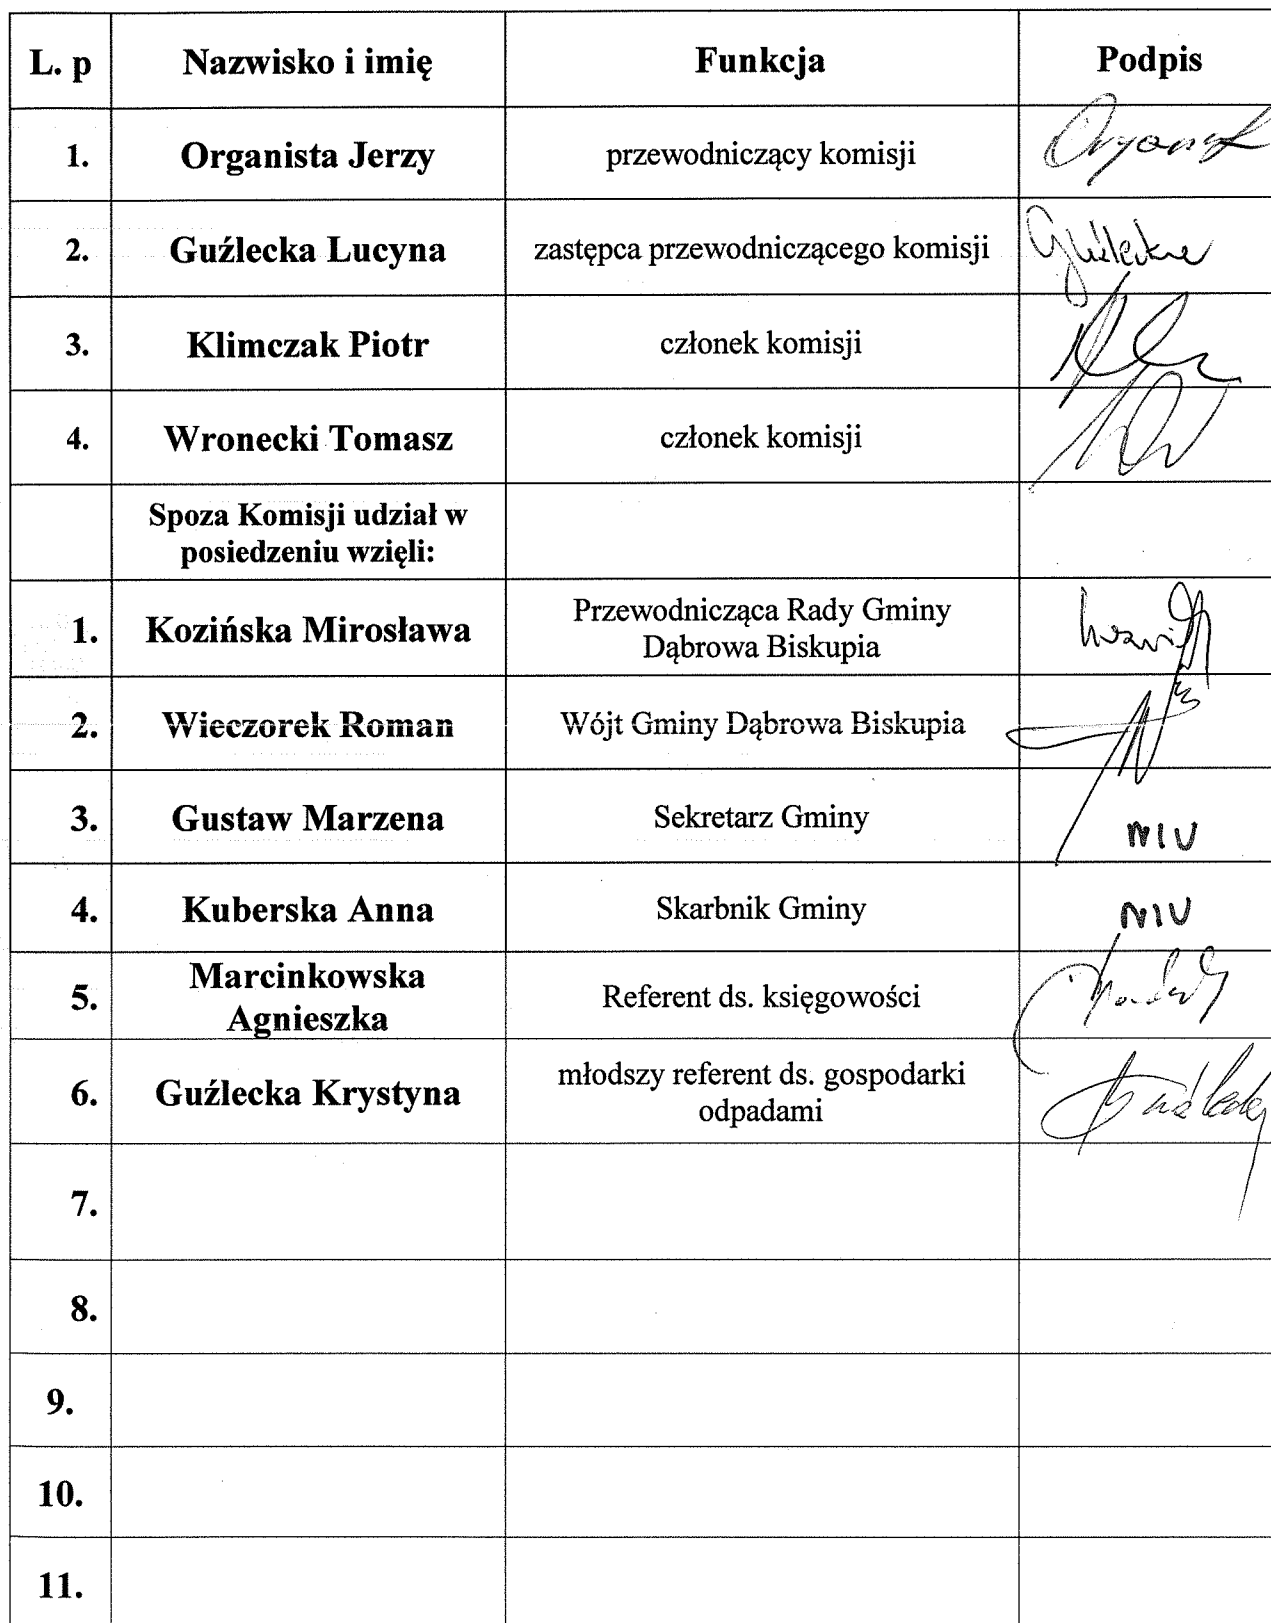 L. p Nazwisko i imię Funkcja Podpis
1. Organista Jerzy przewodniczący komisji
2. Guźlecka Lucyna zastępca przewodniczącego komisji Guźlecka
3. Klimczak Piotr członek komisji
4. Wronecki Tomasz członek komisji
Spoza Komisji udział w
posiedzeniu wzięli:
1. Kozińska Mirosława Przewodnicząca Rady Gminy
Dąbrowa Biskupia
2. Wieczorek Roman Wójt Gminy Dąbrowa Biskupia
3. Gustaw Marzena Sekretarz Gminy
4. Kuberska Anna Skarbnik Gminy
5. Marcinkowska
Agnieszka Referent ds. księgowości
6. Guźlecka Krystyna młodszy referent ds. gospodarki
odpadami
7.
8.
9.
10.
11.